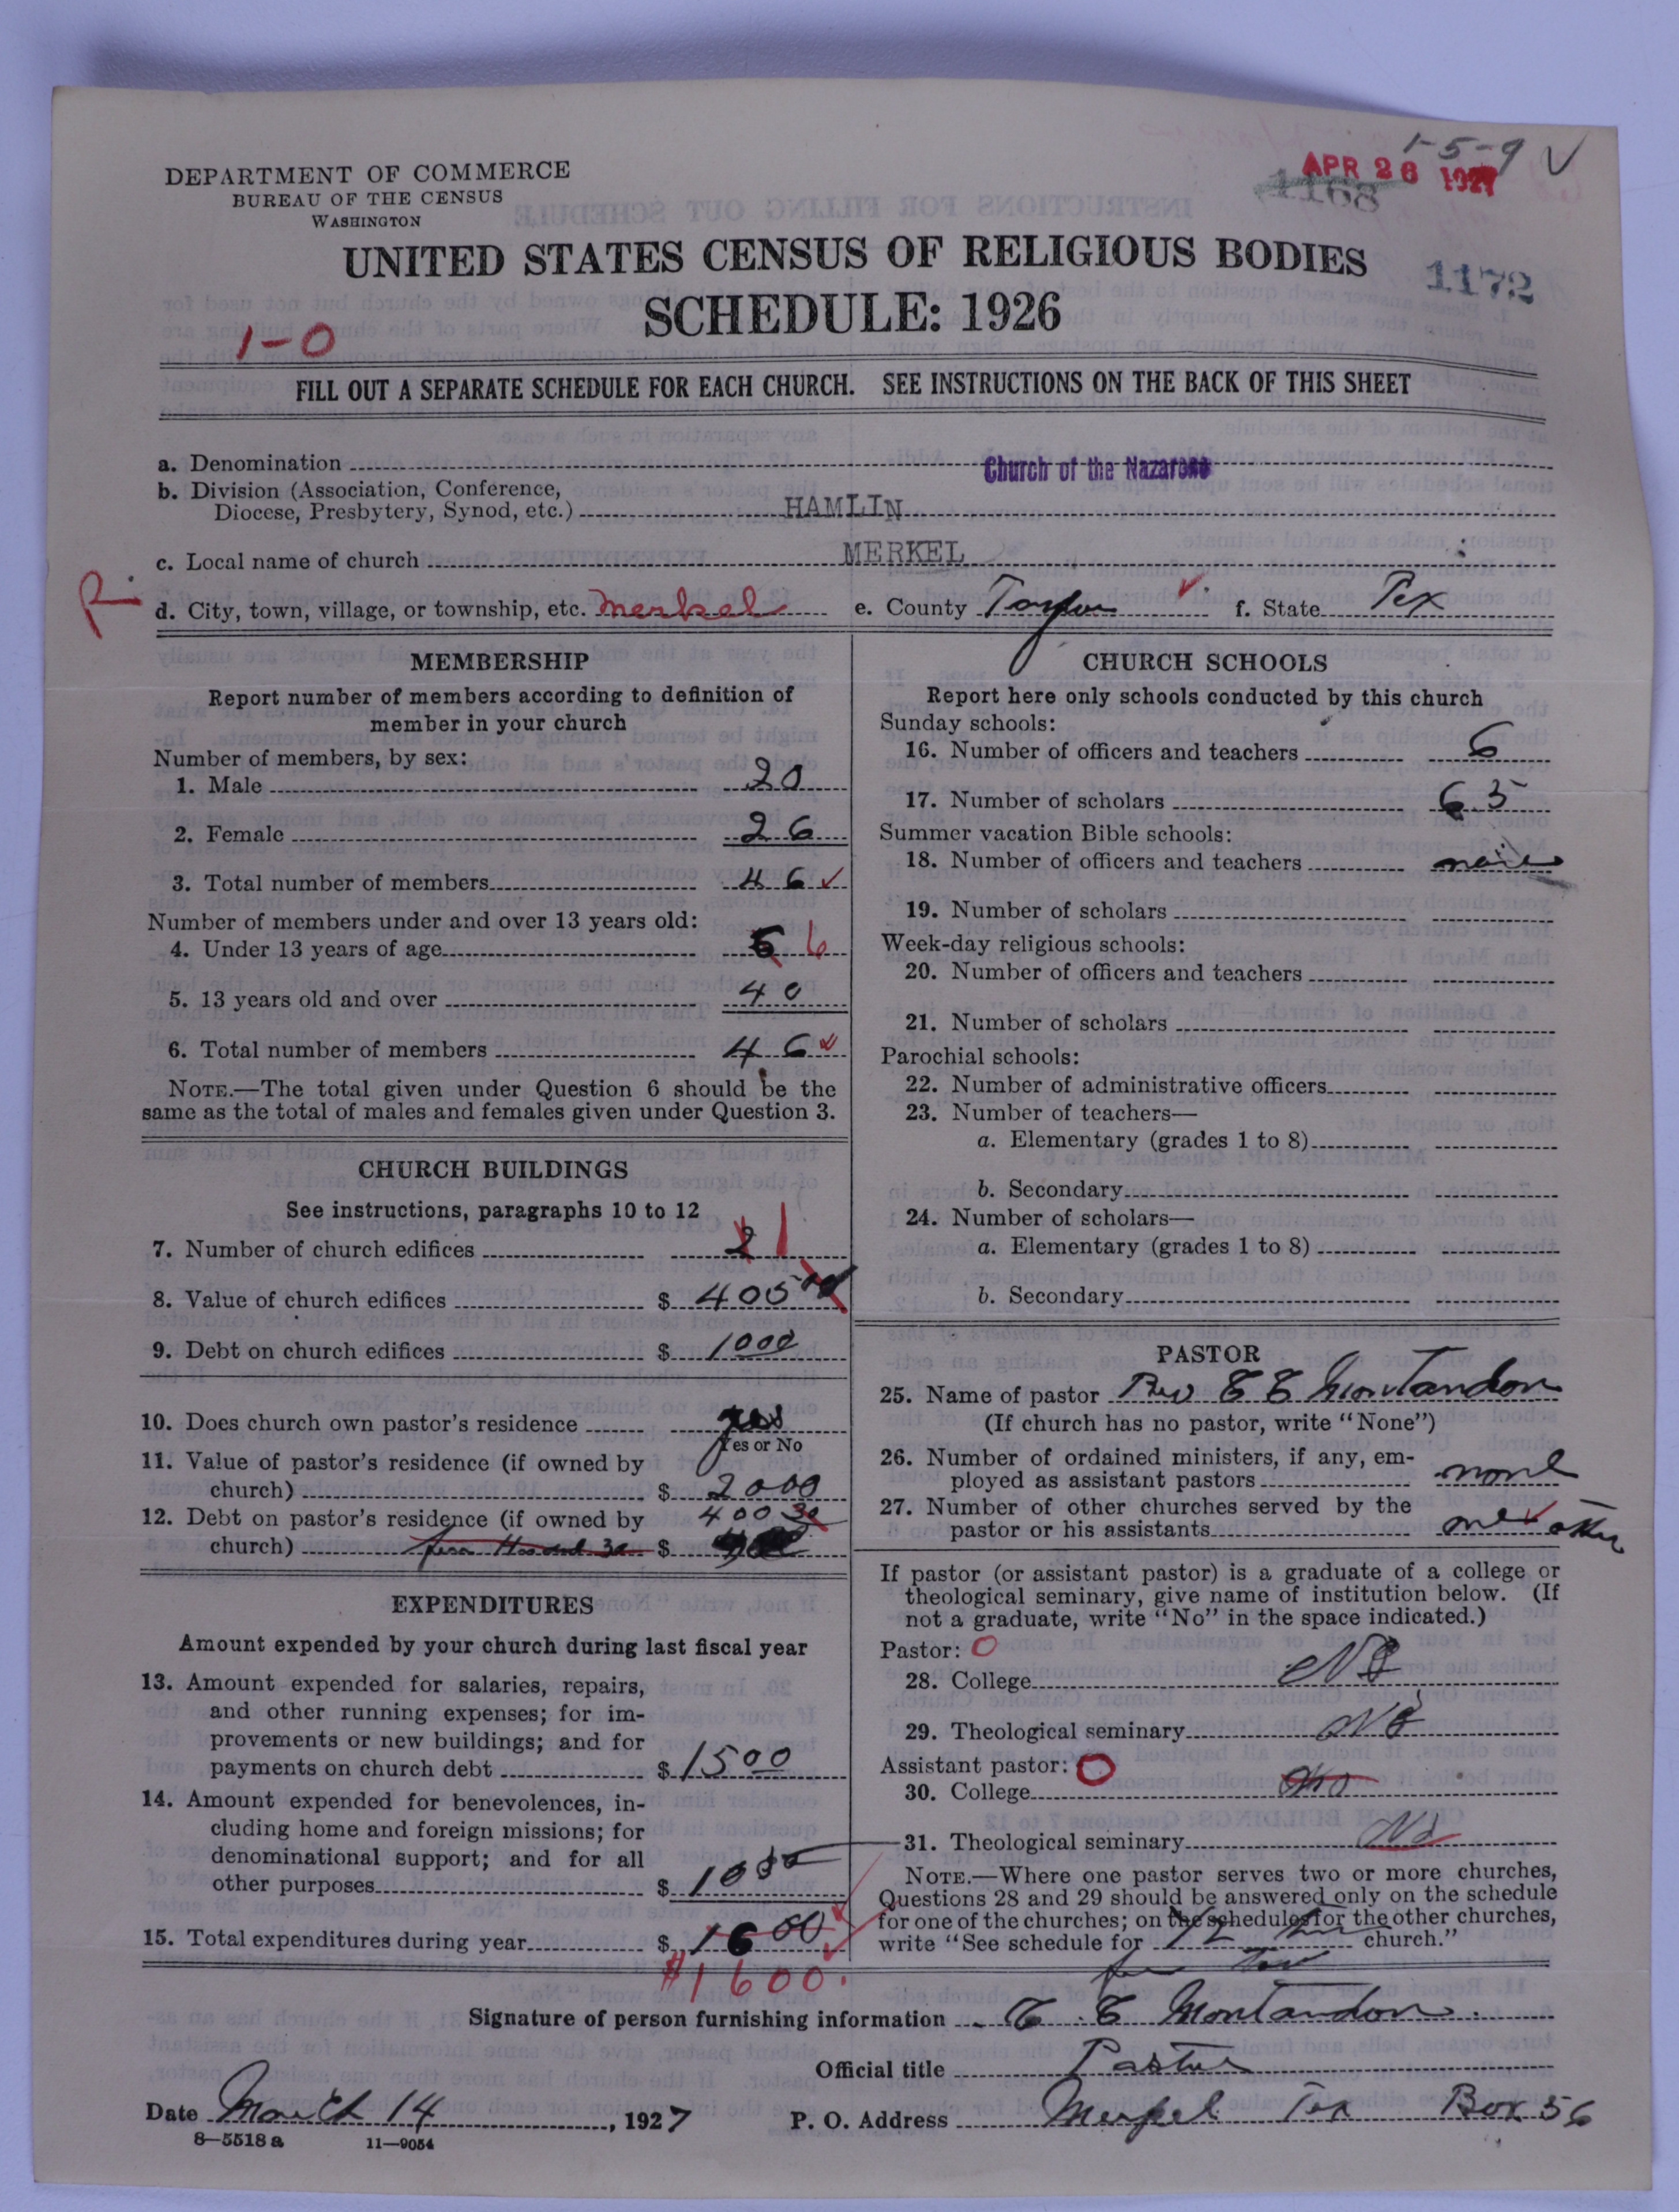 1-5-9 V
APR 26 1927
1168
DEPARTMENT OF COMMERCE
BUREAU OF THE CENSUS
WASHINGTON
UNITED STATES CENSUS OF RELIGIOUS BODIES
1172
SCHEDULE: 1926
1-0
FILL OUT A SEPARATE SCHEDULE FOR EACH CHURCH. SEE INSTRUCTIONS ON THE BACK OF THIS SHEET
a. Denomination Church of the Nazarene
b. Division (Association, Conference,
Diocese, Presbytery, Synod, etc.) HAMLIN
c. Local name of church MERKEL
R
d. City, town, village, or township, etc. Merkel e. County Taylor f. State Tex
MEMBERSHIP
Report number of members according to definition of
member in your church
Number of members, by sex:
1. Male 20
2. Female 26
3. Total number of members 46
Number of members under and over 13 years old:
4. Under 13 years of age 6
5. 13 years old and over 40
6. Total number of members 46
NOTE.—The total given under Question 6 should be the
same as the total of males and females given under Question 3.
CHURCH BUILDINGS
See instructions, paragraphs 10 to 12
7. Number of church edifices 2 1
8. Value of church edifices $ 405
9. Debt on church edifices $ 1000
10. Does church own pastor's residence yes
Yes or No
11. Value of pastor's residence (if owned by
church) $ 2000
12. Debt on pastor's residence (if owned by 400
church) $
EXPENDITURES
Amount expended by your church during last fiscal year
13. Amount expended for salaries, repairs,
and other running expenses; for im-
provements or new buildings; and for
payments on church debt $ 1500
14. Amount expended for benevolences, in-
cluding home and foreign missions; for
denominational support; and for all
other purposes $
15. Total expenditures during year $ 1600
$1600.
CHURCH SCHOOLS
Report here only schools conducted by this church
Sunday schools:
16. Number of officers and teachers 6
17. Number of scholars 65
Summer vacation Bible schools:
18. Number of officers and teachers none
19. Number of scholars
Week-day religious schools:
20. Number of officers and teachers
21. Number of scholars
Parochial schools:
22. Number of administrative officers
23. Number of teachers—
a. Elementary (grades 1 to 8)
b. Secondary
24. Number of scholars—
a. Elementary (grades 1 to 8)
b. Secondary
PASTOR
25. Name of pastor Rev E E Montandon
(If church has no pastor, write "None")
26. Number of ordained ministers, if any, em-
ployed as assistant pastors none
27. Number of other churches served by the
pastor or his assistants one other
If pastor (or assistant pastor) is a graduate of a college or
theological seminary, give name of institution below. (If
not a graduate, write "No" in the space indicated.)
Pastor: O
28. College No
29. Theological seminary No
Assistant pastor: O
30. College No
31. Theological seminary No
NOTE.—Where one pastor serves two or more churches,
Questions 28 and 29 should be answered only on the schedule
for one of the churches; on the schedules for the other churches,
write "See schedule for church."
Signature of person furnishing information E E Montandon
Official title Pastor
Date March 14, 1927 P. O. Address Merkel Tex Box 56
8—5518 a 11—9054